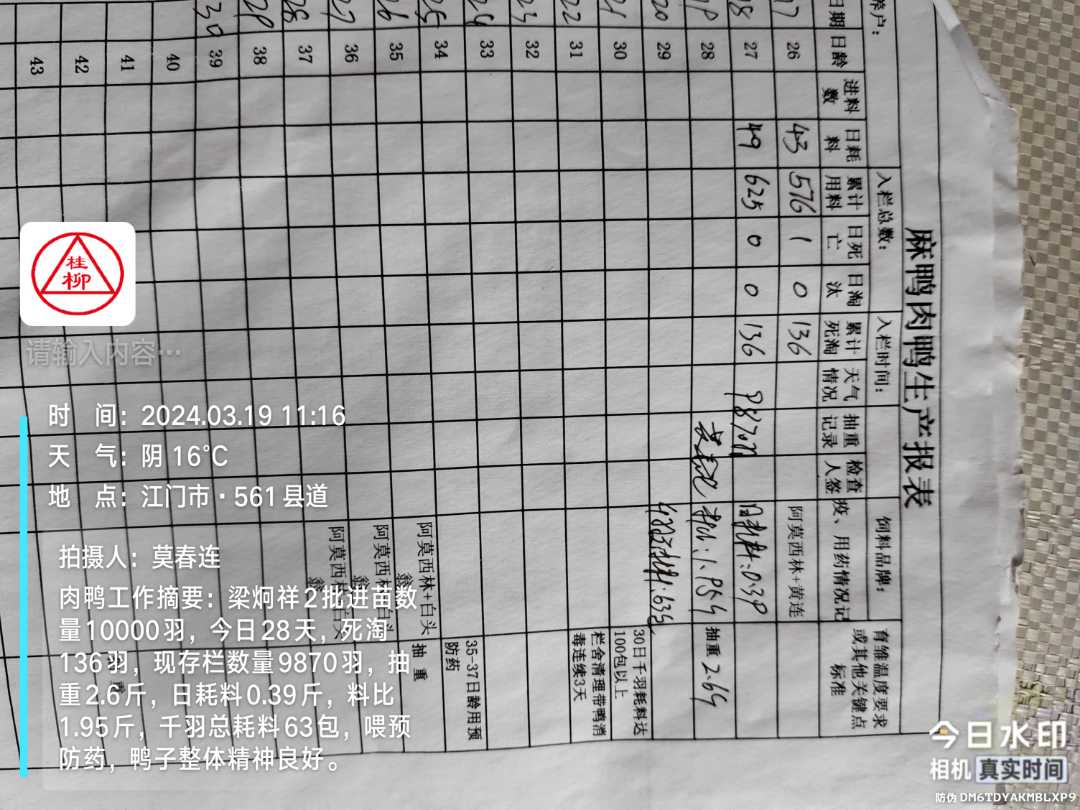 麻鸭肉鸭生产报表
养户：
入栏总数：
入栏时间：
饲料品牌：
育雏温度要求或其他关键点标准
日期 日龄 进料数 日耗料 累计用料 日死亡 日淘汰 累计死淘 天气情况 抽重记录 检查人签 疫、用药情况记
17 26 43 576 1 0 136 阿莫西林+黄连
18 27 49 625 0 0 136 9870羽 日耗料:0.39
19 28 料比:1.95斤 抽重2.6斤
20 29
21 30 30日千羽耗料达100包以上
22 31 栏舍清理带鸭消毒连续3天
23 32
24 33 35-37日龄用预防药
25 34 阿莫西林+白头翁 抽重
26 35 阿莫西林+白头翁
27 36 阿莫西林+白头翁
28 37
29 38
30 39
40
41
42
43
桂
柳
请输入内容…
时 间：2024.03.19 11:16
天 气：阴 16℃
地 点：江门市·561县道
拍摄人：莫春连
肉鸭工作摘要：梁炯祥2批进苗数
量10000羽，今日28天，死淘
136羽，现存栏数量9870羽，抽
重2.6斤，日耗料0.39斤，料比
1.95斤，千羽总耗料63包，喂预
防药，鸭子整体精神良好。
今日水印
相机 真实时间
防伪 DM6TDYAKMBLXP9